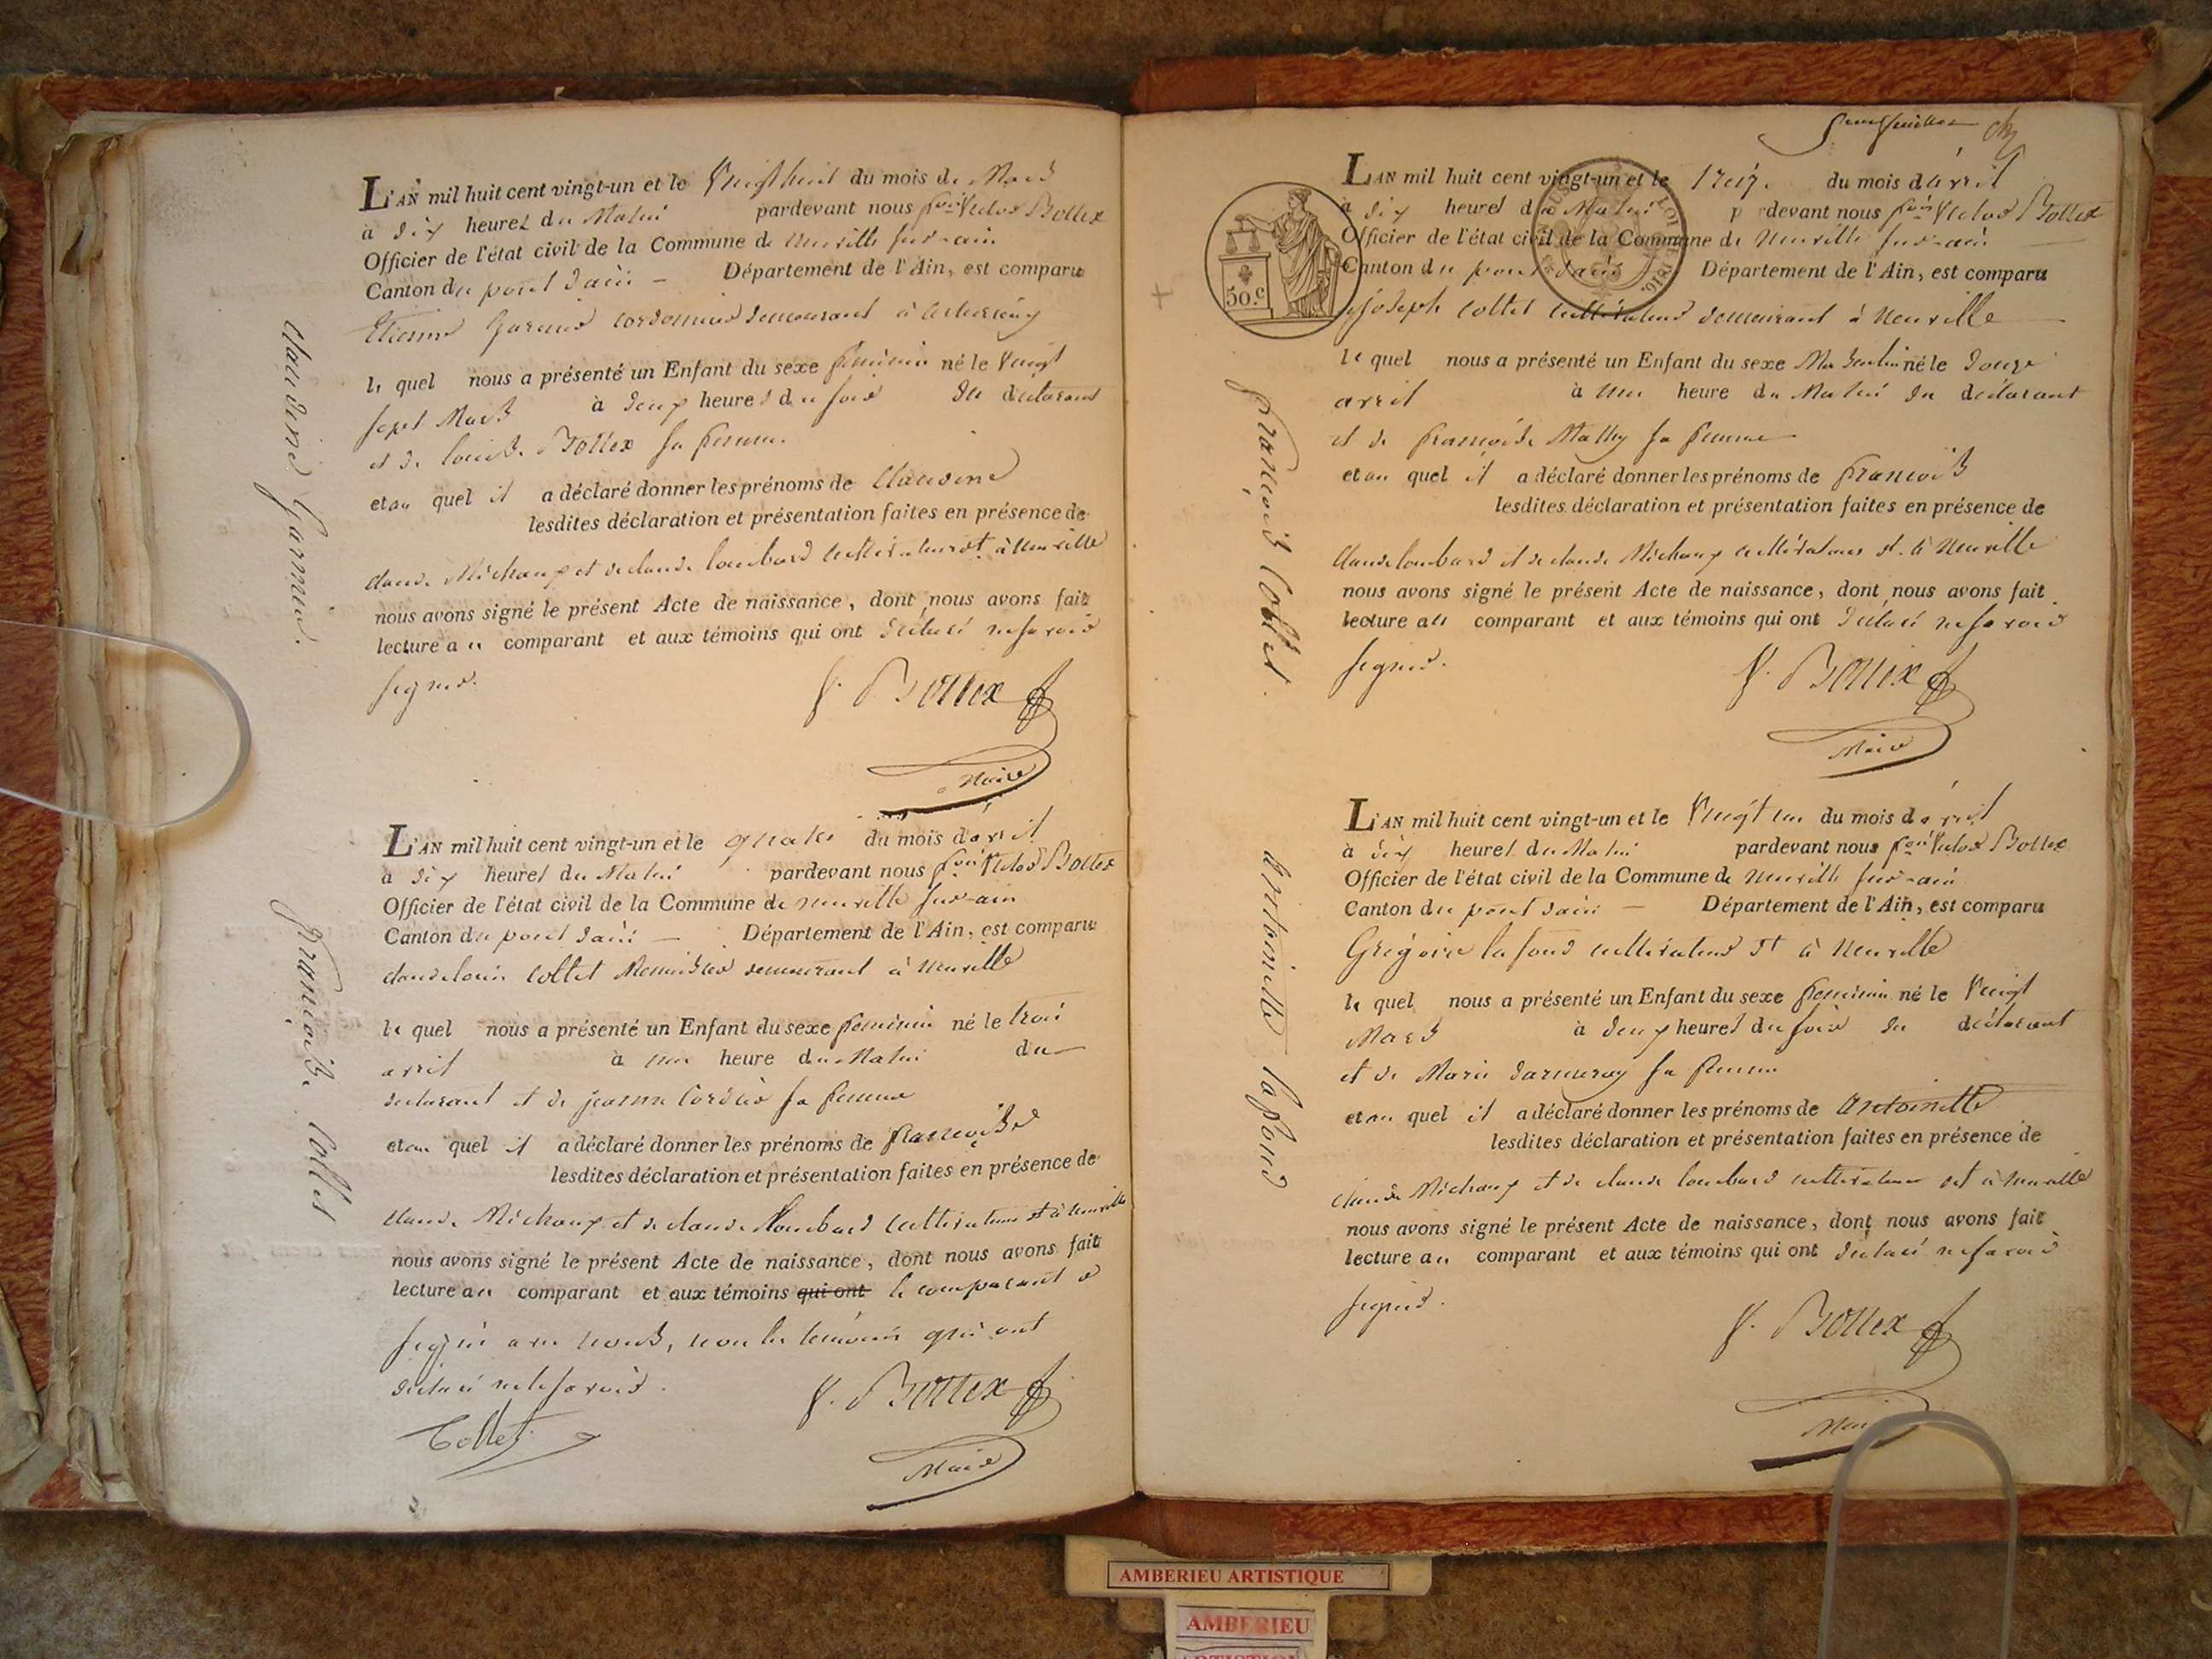 L'AN mil huit cent vingt-un et le Vingt huit du mois de Mars
à dix heures du Matin pardevant nous fçois Victor Bottex
Officier de l'état civil de la Commune de Neuville sur-ain
Canton du pont dain — Département de l'Ain, est comparu
Etienne Garnier cordonnier demeurant à
le quel nous a présenté un Enfant du sexe feminin né le Vingt
sept Mars à deux heures du soir du déclarant
et de Louise Bottex sa femme.
et au quel il a déclaré donner les prénoms de Claudine
lesdites déclaration et présentation faites en présence de
claude Michaux et de claude lombard cultivateurs dt. à Neuville
nous avons signé le présent Acte de naissance, dont nous avons fait
lecture au comparant et aux témoins qui ont déclaré ne savoir
signer.
V. Bottex
Maire
claudine Garnier.
L'AN mil huit cent vingt-un et le quatre du mois d'avril
à dix heures du Matin pardevant nous fçois Victor Bottex
Officier de l'état civil de la Commune de Neuville sur-ain
Canton du pont dain — Département de l'Ain, est comparu
claude louis Collet Menuisier demeurant à Neuville
le quel nous a présenté un Enfant du sexe feminin né le trois
avril à une heure du Matin du
déclarant et de jeanne Cordier sa femme
et au quel il a déclaré donner les prénoms de françoise
lesdites déclaration et présentation faites en présence de
claude Michaux et de claude Lombard cultivateurs dt à Neuville
nous avons signé le présent Acte de naissance, dont nous avons fait
lecture au comparant et aux témoins qui ont le comparant a
signé avec nous, non les témoins qui ont
déclaré ne le savoir.
Collet
V. Bottex
Maire
françoise Collet
L'AN mil huit cent vingt-un et le du mois d'avril
à dix heures du Matin pardevant nous fçois Victor Bottex
Officier de l'état civil de la Commune de Neuville sur-ain
Canton du pont dain Département de l'Ain, est comparu
joseph Collet cultivateur demeurant à Neuville
le quel nous a présenté un Enfant du sexe Masculin né le douze
avril à une heure du Matin du déclarant
et de françoise Mathy sa femme
et au quel il a déclaré donner les prénoms de françois
lesdites déclaration et présentation faites en présence de
Claude lombard et de claude Michaux cultivateurs dt. à Neuville
nous avons signé le présent Acte de naissance, dont nous avons fait
lecture au comparant et aux témoins qui ont déclaré ne savoir
signer.
V. Bottex
Maire
50.c
LOI DE 1816.
françois Collet.
L'AN mil huit cent vingt-un et le Vingt un du mois d'avril
à dix heures du Matin pardevant nous fçois Victor Bottex
Officier de l'état civil de la Commune de Neuville sur-ain
Canton du pont dain — Département de l'Ain, est comparu
Grégoire lafond cultivateur dt à Neuville
le quel nous a présenté un Enfant du sexe feminin né le Vingt
Mars à deux heures du soir du déclarant
et de Marie sa femme
et au quel il a déclaré donner les prénoms de Antoinette
lesdites déclaration et présentation faites en présence de
claude Michaux et de claude lombard cultivateurs dt à Neuville
nous avons signé le présent Acte de naissance, dont nous avons fait
lecture au comparant et aux témoins qui ont déclaré ne savoir
signer.
V. Bottex
Maire
Antoinette lafond
AMBERIEU ARTISTIQUE
AMBERIEU
ARTISTIQUE